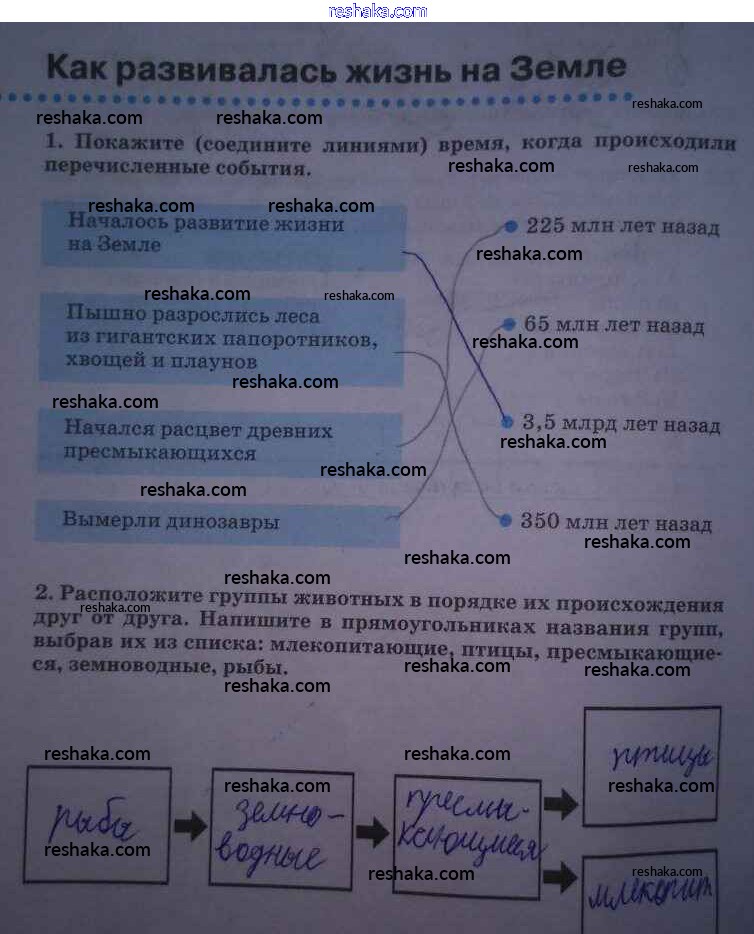 reshaka.com
Как развивалась жизнь на Земле
reshaka.com
reshaka.com reshaka.com
1. Покажите (соедините линиями) время, когда происходили
перечисленные события.
reshaka.com reshaka.com
reshaka.com reshaka.com
Началось развитие жизни
на Земле
225 млн лет назад
reshaka.com
reshaka.com reshaka.com
Пышно разрослись леса
из гигантских папоротников,
хвощей и плаунов
65 млн лет назад
reshaka.com
reshaka.com
reshaka.com
Начался расцвет древних
пресмыкающихся
3,5 млрд лет назад
reshaka.com
reshaka.com
reshaka.com
Вымерли динозавры
350 млн лет назад
reshaka.com
reshaka.com
reshaka.com
2. Расположите группы животных в порядке их происхождения
друг от друга. Напишите в прямоугольниках названия групп,
выбрав их из списка: млекопитающие, птицы, пресмыкающие-
ся, земноводные, рыбы.
reshaka.com
reshaka.com
reshaka.com
reshaka.com
reshaka.com
reshaka.com reshaka.com
рыбы
reshaka.com
земно-
reshaka.com
водные
пресмы-
кающиеся
reshaka.com
птицы
reshaka.com
reshaka.com
млекопит
reshaka.com